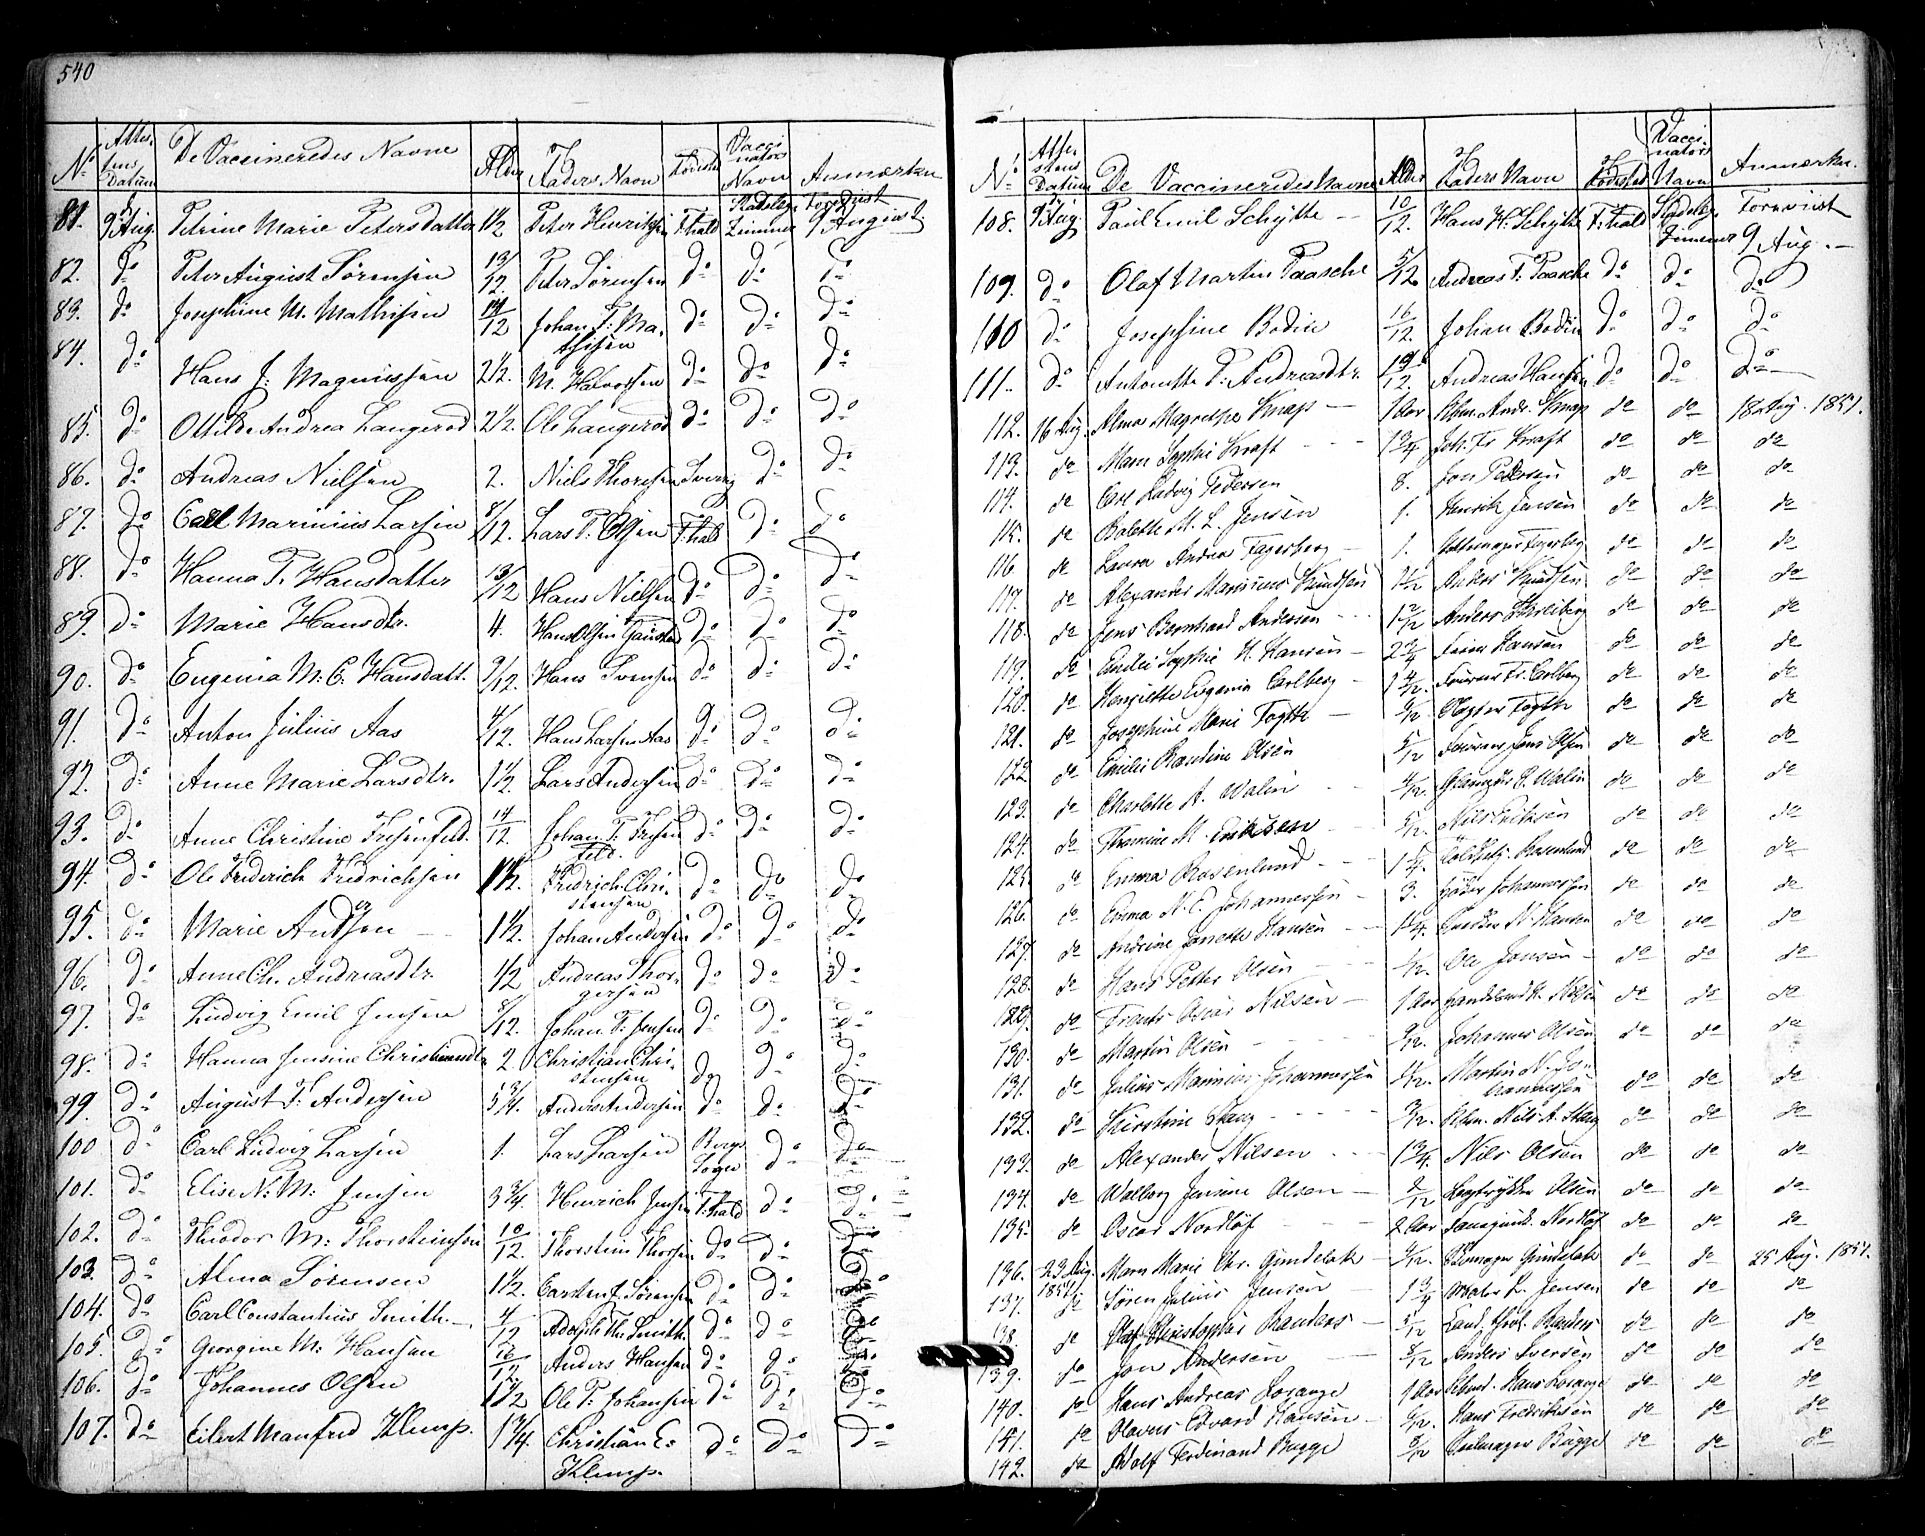 540
No
Attestens Datum
De Vaccineredes Navne
Alder
Faders Navn
Fødested
Vaccinators Navn
Anmærkn
81. 9 Aug. Petrine Marie Petersdatter 1 1/2 Peter Henriksen F:hald Zimmer 9 August
82. do Peter August Sørensen 13/12 Peter Sørensen do do do
83. do Josephine M. Mathisen 14/12 Johan F: Ma-
thisen do do do
84. do Hans J: Magnussen 2 1/2. M. Halvorsen do do do
85. do Ottilde Andrea Langerød 2 1/2. Ole Langerød do do do
86. do Andreas Nielsen 2. Niels Thoresen Sverig do do
87. do Carl Marinius Larsen 8/12. Lars P. Olsen F:hald do do
88. do Hanna P. Hansdatter 13/12 Hans Nielsen do do do
89. do Marie Hansdtr. 4. Hans Olsen do do do
90. do Eugenia M. C. Hansdatt. 9/12. Hans Svensen do do do
91. do Anton Julius Aas 4/12. Hans Larsen Aas do do do
92. do Anne Marie Larsdtr. 1 1/2 Lars Andersen do do do
93. do Anne Christine Fresenfeld. 14/12. Johan F. Fresen
feld. do do do
94. do Ole Friderich Fredrichsen 1 1/2. Fredrich Chri-
stensen do do do
95. do Marie Andsen 1 1/2. Johan Andersen do do do
96. do Anne Ch. Andreasdtr. 1/2 Andreas Thor-
gersen do do do
97. do Ludvig Emil Jensen 8/12. Johan F: Jensen do do do
98. do Hanna Jensine Christiansdtr 2 Christian Chri-
stensen do do do
99. do August F: Andersen 5 3/4. Anders Andersen do do do
100 do Carl Ludvig Larsen 1. Lars Larsen Bergs
Sogn do do
101. do Elise N: M: Jensen 3 3/4. Henrich Jensen F:hald do do
102. do Theodor M: Thorsteinsen 10/12. Thorstein Thorsen do do do
103. do Alma Sørensen 1 1/2. Carsten J. Sørensen do do do
104. do Carl Constantius Smith. 4/12 Adolph Th. Smith. do do do
105. do Georgine M: Hansen 16/12 Anders Hansen do do do
106. do Johannes Olsen 1 1/2 Ole P. Johansen do do do
107. do Eilert Manfred Klemp. 1 3/4. Christian E:
Klemp. do do do
No
Attestens Datum
De Vaccineredes Navne
Alder
Faders Navn
Fødested
Vaccinators Navn
Anmærkn.
108. 9 Aug. Paul Emil Schytte 10/12. Hans H. Schytte F:hald Zimmer 9 Aug.
109. do Olaf Martin Paasche 5/12. Andreas F. Paasche do do do
110 do Josephine Bodin 16/12. Johan Bodin do do do
111. do Antonette P. Andreasdtr. 19/12. Andreas Hansen do do do
112. 16 Aug. Alma Knap 1 Aar Andr. Knap do do 18 Aug. 1851.
113. do Maren Sophie Kraft 1 3/4 Joh. Fr. Kraft do do do
114. do Carl Ludvig Pedersen 8. Jon Pedersen do do do
115. do Bolette M. L. Jensen 1. Henrik Jensen do do do
116 do Laura Andrea Fagerberg 1. Fagerberg do do do
117. do Alexander Marinius Knudsen 1 1/2 Anders Knudsen do do do
118. do Jens Bernhard Andersen Anders do do do
119. do Emilie Sophie H. Hansen 2 3/4 Hansen do do do
120. do Henriette Eugenia Carlberg Fr. Carlberg do do do
121. do Josephine Marie Fogth Fogth do do do
122 do Emilie Randine Olsen Jens Olsen do do do
123. do Charlotte A. Walin Walin do do do
124. do Thomine M. Eriksen Nils Eriksen do do do
125. do Emma Rosenlund Rosenlund do do do
126. do Emma N. E. Johannessen 3. Johannessen do do do
127. do Andrine Janette Hansen N. Hansen do do do
128. do Hans Petter Olsen Ole Jonsen do do do
129. do Frants Oscar Nilsen 1 Aar Nilsen do do do
130. do Martin Olsen Johannes Olsen do do do
131. do Julius Marinius Johannessen Martin N. Jo-
hannessen do do do
132. do Kirstine Stang Nils A. Stang do do do
133. do Alexander Nilsen 1 3/4. Nils Olsen do do do
134. do Walborg Jensine Olsen Bogtrykker Olsen do do do
135. do Oscar Nordlöf 2 Aar Nordlöf do do do
136. 23 Aug. Maren Marie Chr. Gundelach Gundelach do do 25 Aug. 1851.
137. 1851 do Søren Julius Jensen 1 3/4 Jensen do do do
138. do Olaf Christopher Randers Cand. Randers do do do
139. do Jon Andersen Anders Iversen do do do
140. do Hans Andreas Lorange 1 Aar Hans Lorange do do do
141. do Olavus Edvard Hansen Hans Fredriksen do do do
142. do Adolf Ferdinand Bugge Bugge do do do